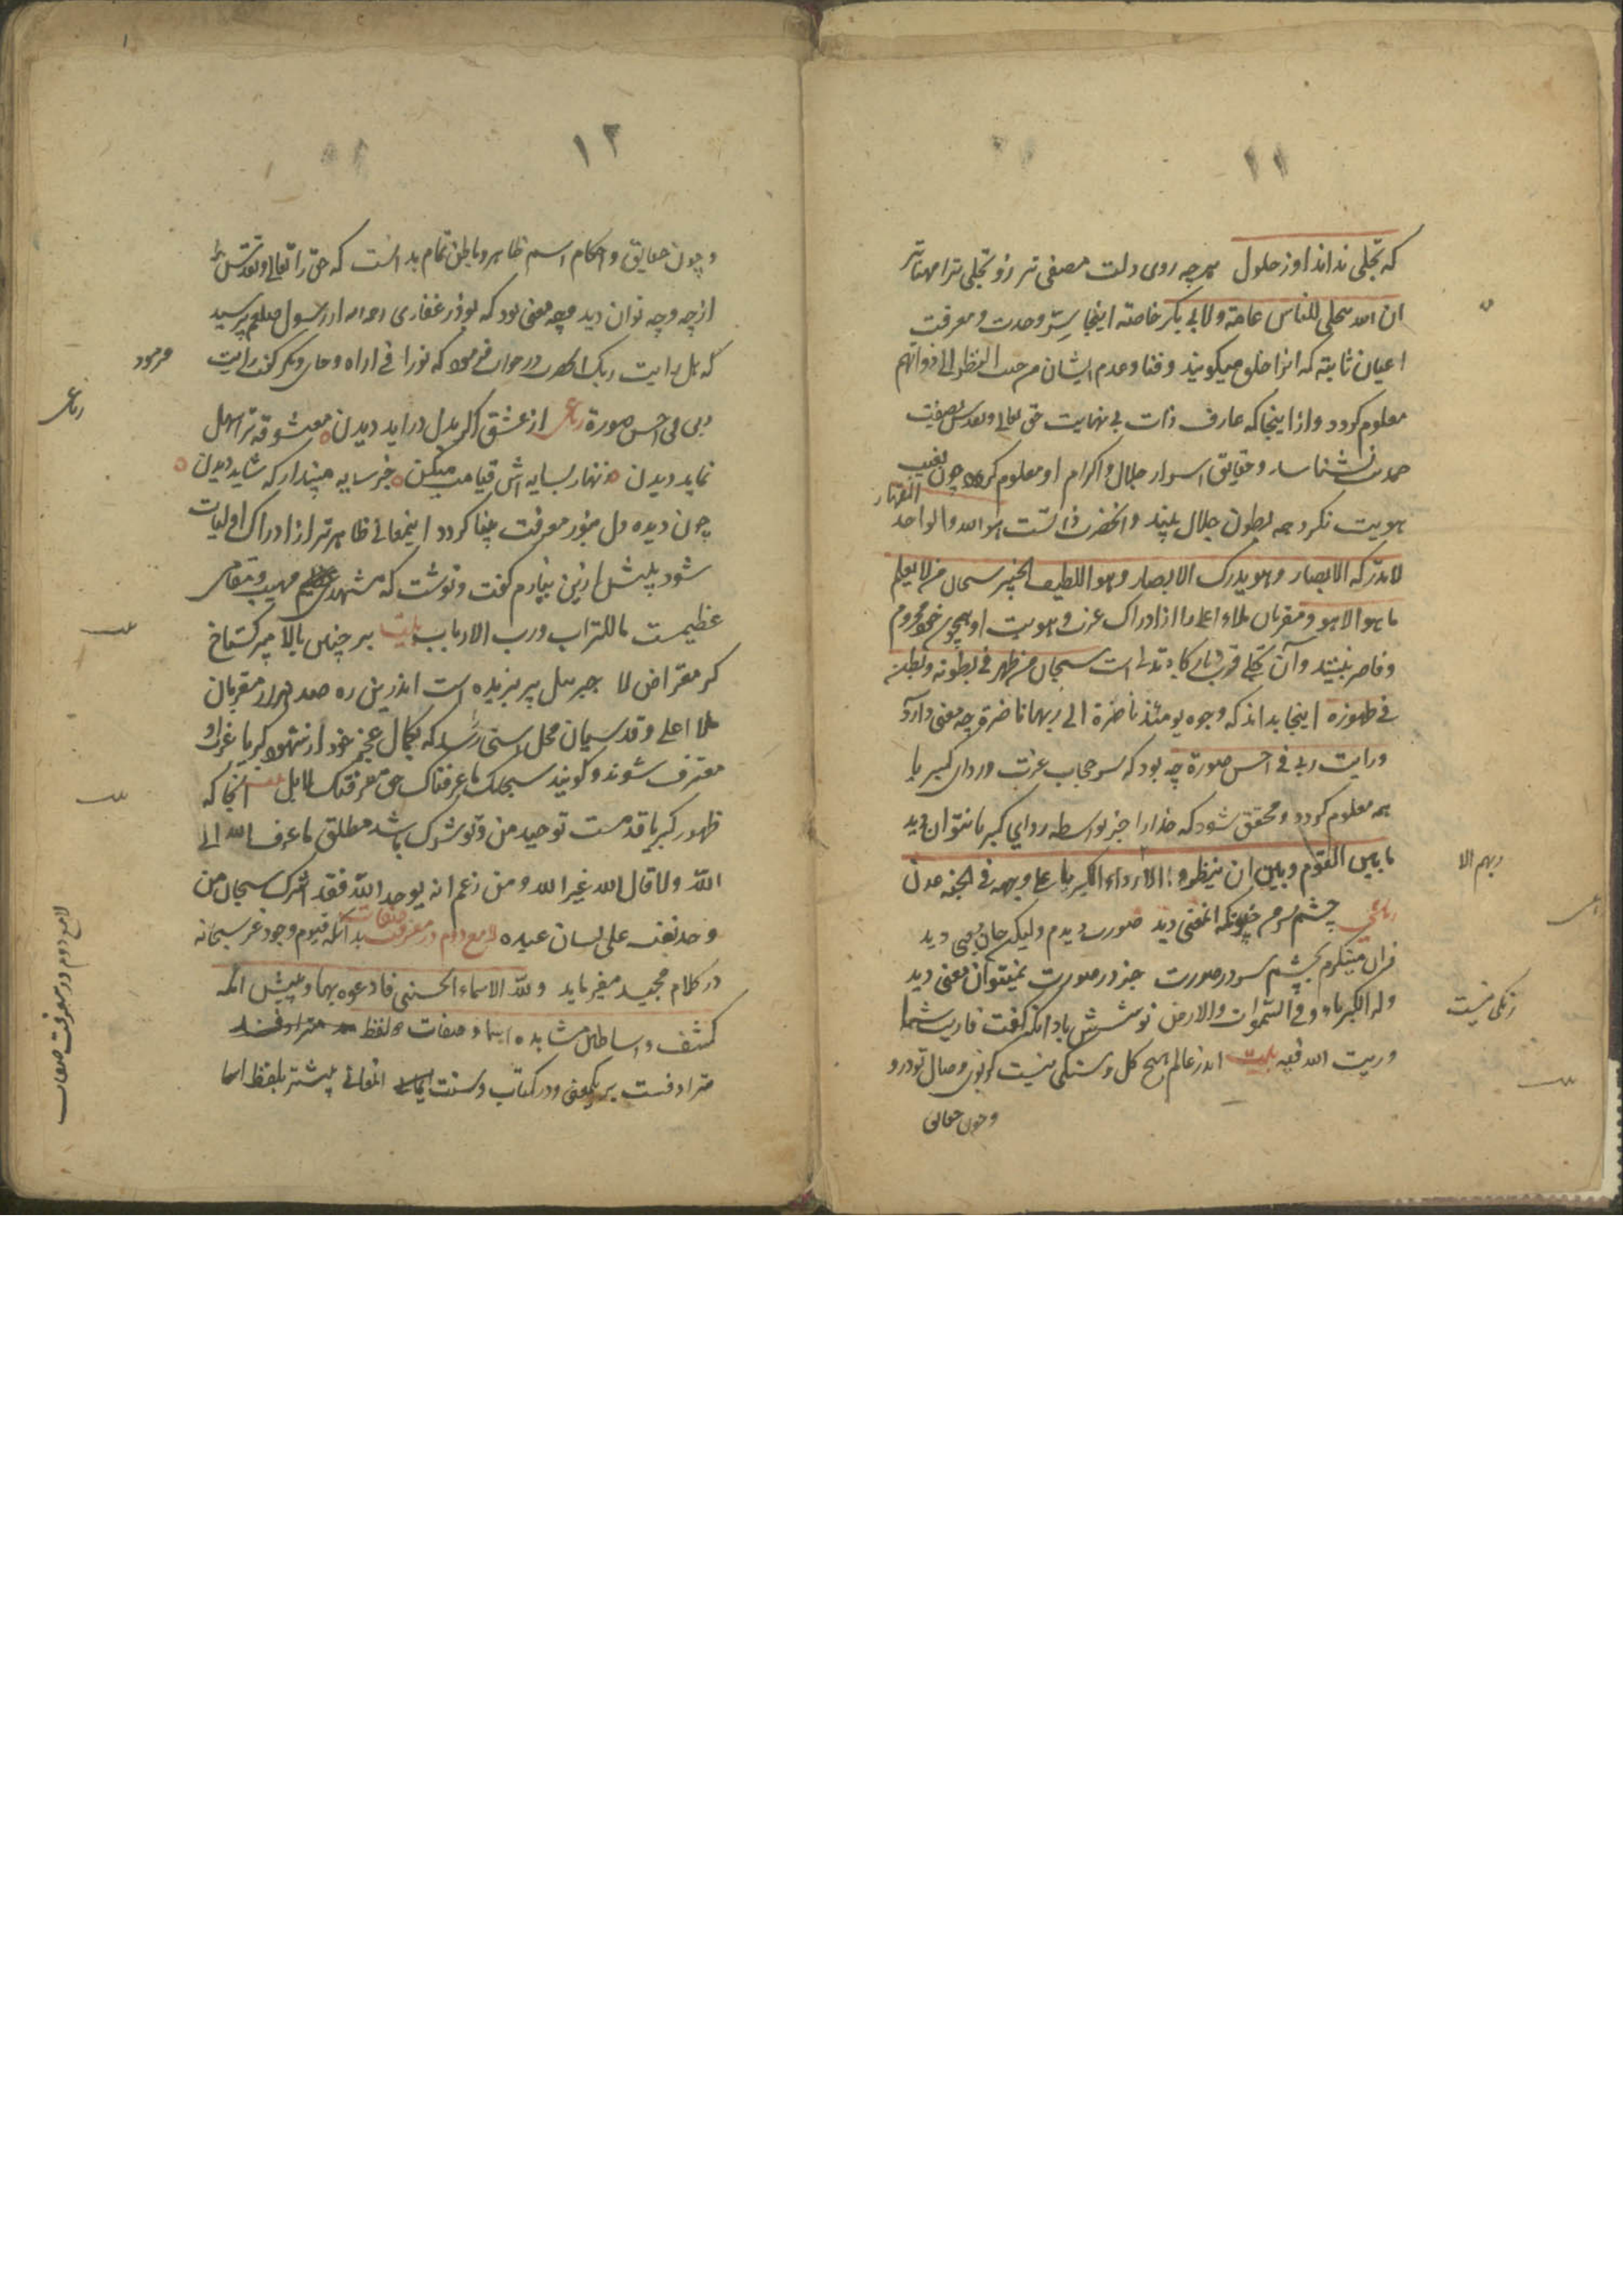 ۱۱
که تجلی نداند او ز حلول هرچه روی دلت مصفی تر زو تجلی ترا مهیاتر
ان الله یتجلی للناس عامة ولابی بکر خاصته اینجا سِرّ وحدت و معرفت
اعیان ثابته که انرا خلق میکویند و فنا و عدم ایشان من حیث النظر الی ذواتهم
معلوم کردد و از اینجا که عارف ذات بی نهایت حق تعالی و تقدس بصفت
نشناسد و حقایق اسرار جلال و اکرام او معلوم کرده چون بغیب
هویت نکرد همه بطون جلال بیند و انحضرت ذاتست هو الله الواحد القهار
لا تدرکه الابصار و هو یدرک الابصار و هو اللطیف الخبیر سبحان من لا یعلم
ما هو الا هو و مقربان ملاء اعلا را از ادراک عزت و هویت او همچون خود محروم
و قاصر بیند و آن تجلی سبحان من ظهر فی بطونه و بطن
فی ظهوره اینجا بداند که وجوه یومئذ ناضرة الی ربها ناظرة چه معنی دارد
و رایت ربی فی احسن صورة چه بود که سر حجاب عزت و ردای کبریا
همه معلوم کردد و محقق شود که خدا را جز بواسطه ردای کبریا نتوان دید
ما بین القوم و بین ان ینظروا الا رداء الکبریا علی وجهه فی الجنة عدن
ربهم الا
رباعی چشم سرم چونکه انمعنی دید صورت دیدم ولیک جان معنی دید
زان مینکرم بچشم سر در صورت جز در صورت نمیتوان معنی دید
وله الکبریاء فی السموات والارض نوشش باد انکه کفت ما رایت شیئا
و رایت الله فیه بیت اندر عالم هیچ کل و سنکی نیست کو بوی وصال تو درو
رنکی نیست
و چون حقایق
۱۲
و چون حقایق و احکام اسم ظاهر و باطن تمام بدانست که حق را تعالی و تقدس
از چه وجه توان دید و چه معنی بود که بوذر غفاری از رسول صلعم پرسید
که هل رایت ربک در جواب فرمود که نورا نی اراه و جای دیکر کفت رایت
فرمود
ربی فی احسن صورة رباعی از عشق اکر بدل دراید دیدن معشوقه ترا سهل
رباعی
نماید دیدن زنهار بسایه اش قیامت میکن جز سایه مپندار که شاید دیدن
چون دیده دل بنور معرفت بینا کردد اینمعانی ظاهرتر از ادراک اولیات
شود بیش ازین نیارم کفت و نوشت که مشهدی عظیم مهیب و مقامی
عظیمست ما للتراب و رب الارباب بیت بر چنین بالا مپر کستاخ
کز مقراض لا جبرییل پر بریده است اندرین ره صد هزار مقربان
ملا اعلی و قدسیان محل رسد که بکمال عجز خود از شهود کبریا عزت او
معترف شوند و کویند سبحانک ما عرفناک حق معرفتک انجا که
ظهور کبریا قدمست توحید من و تو شرک باشد مطلق ما عرف الله الا
الله و لا قال الله غیر الله و من زعم انه یوحد الله فقد اشرک سبحان من
وحد نفسه علی لسان عبده لامع دوم در معرفت صفات بدانکه قیوم وجود عز سبحانه
در کلام مجید میفرماید ولله الاسماء الحسنی فادعوه بها و پیش ائمه
کشف و اساطین مشاهده اسما و صفات دو لفظ مترادفند
مترادفست بر یکمعنی و در کتاب و سنت انمعانی بیشتر بلفظ اسما
لامع دوم در معرفت صفات